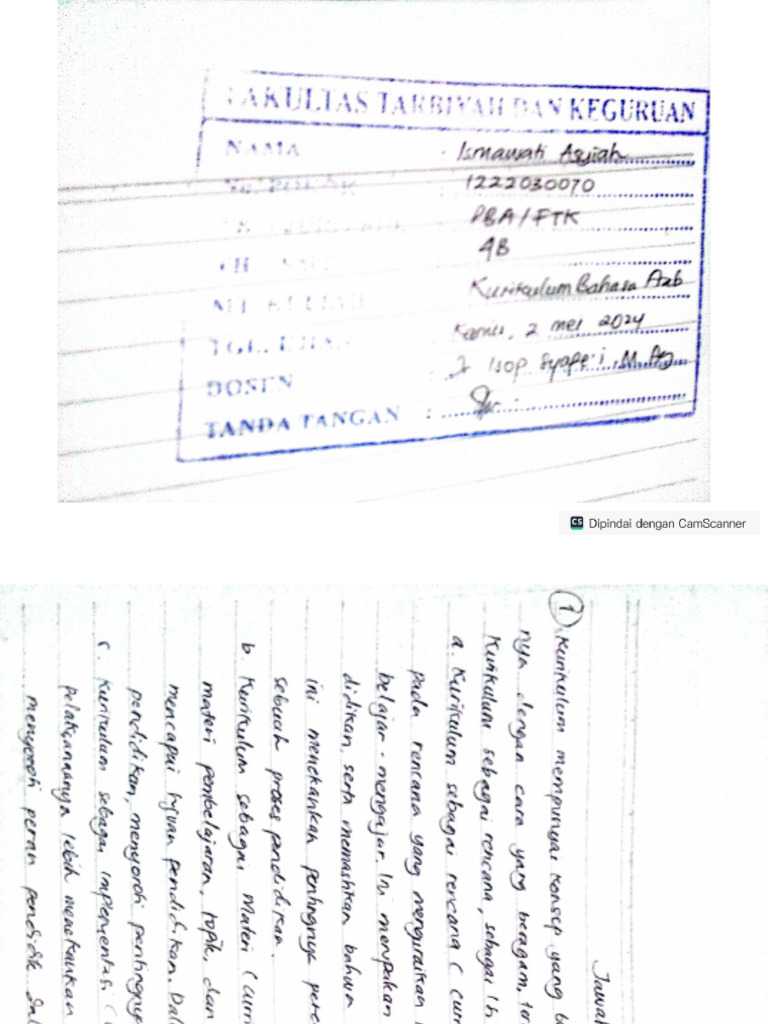 FAKULTAS TARBIYAH DAN KEGURUAN
NAMA : Ismawati Asyiah
1222030070
PBA/FTK
4B
Kurikulum Bahasa Arab
Kamis, 2 mei 2024
DOSEN : Dr. Isop Syafe'i, M.Ag
TANDA TANGAN :
CS Dipindai dengan CamScanner
Jawab
1) Kurikulum mempunyai konsep yang
nya dengan cara yang beragam,
Kurikulum sebagai rencana, sebagai
a. Kurikulum sebagai rencana (
pada rencana yang menguraikan
belajar-mengajar. Ini merupakan
didikan serta memastikan bahwa
ini menekankan pentingnya
sebuah proses pendidikan.
b. Kurikulum sebagai Materi (
materi pembelajaran, topik, dan
mencapai tujuan pendidikan.
pendidikan, menyoroti pentingnya
c. Kurikulum sebagai implementasi (
pelaksanaannya lebih menekankan
menyoroti peran pendidik